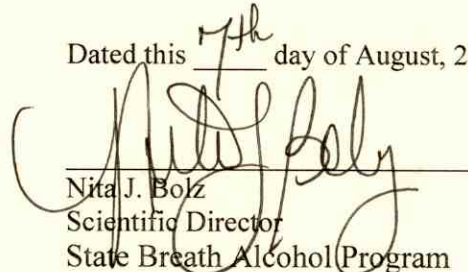 Dated this 7th day of August, 2
Nita J. Bolz
Nita J. Bolz
Scientific Director
State Breath Alcohol Program